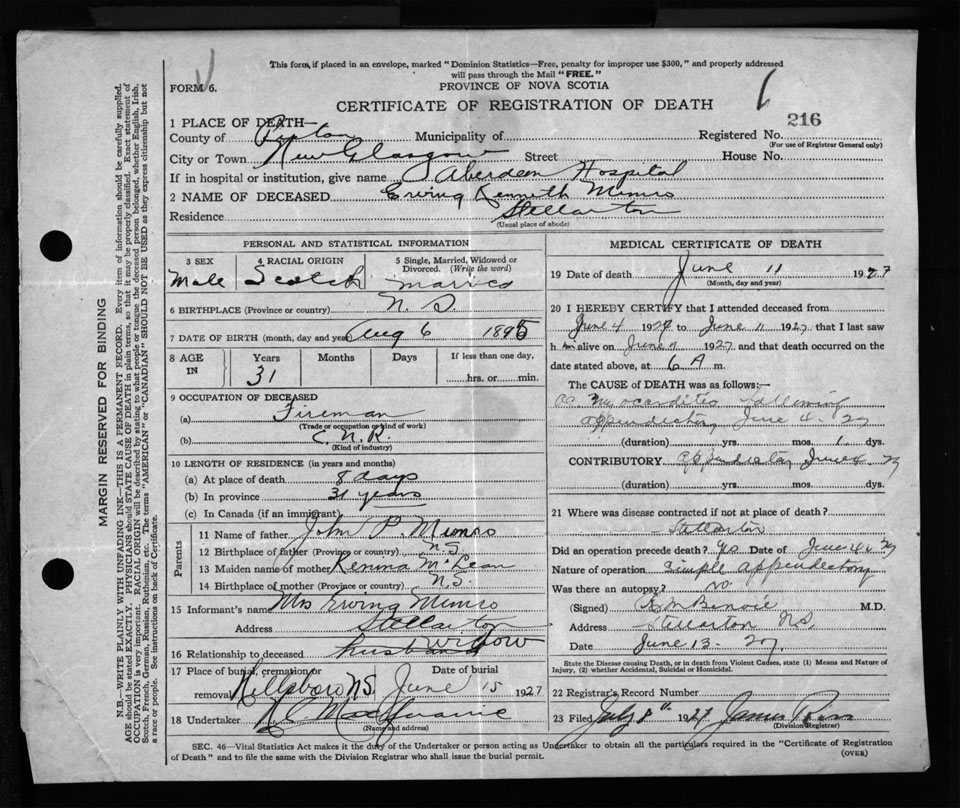 This form, if placed in an envelope, marked "Dominion Statistics—Free, penalty for improper use $300," and properly addressed
will pass through the Mail "FREE."
FORM 6.
PROVINCE OF NOVA SCOTIA
CERTIFICATE OF REGISTRATION OF DEATH
216
1 PLACE OF DEATH—
County of Pictou Municipality of Registered No.
(For use of Registrar General only)
City or Town New Glasgow Street House No.
If in hospital or institution, give name Aberdeen Hospital
2 NAME OF DECEASED Erving Kenneth Munro
Residence Stellarton
(Usual place of abode)
MARGIN RESERVED FOR BINDING
N.B.—WRITE PLAINLY WITH UNFADING INK—THIS IS A PERMANENT RECORD. Every item of information should be carefully supplied.
AGE should be stated EXACTLY. PHYSICIANS should STATE CAUSE OF DEATH in plain terms, so that it may be properly classified. Exact statement of
OCCUPATION is very important. RACIAL ORIGIN will be described by stating to what people or tongue the deceased person belonged, whether English, Irish,
Scotch, French, German, Russian, Ruthenian, etc. The terms "AMERICAN" or "CANADIAN" SHOULD NOT BE USED as they express citizenship but not
a race or people. See instructions on back of Certificate.
PERSONAL AND STATISTICAL INFORMATION
3 SEX
Male
4 RACIAL ORIGIN
Scotch
5 Single, Married, Widowed or
Divorced. (Write the word)
Married
6 BIRTHPLACE (Province or country) N. S.
7 DATE OF BIRTH (month, day and year) Aug 6 1895
8 AGE
IN
Years
31
Months
Days
If less than one day,
hrs. or min.
9 OCCUPATION OF DECEASED
(a) Fireman
(Trade or occupation or kind of work)
(b) C.N.R.
(Kind of industry)
10 LENGTH OF RESIDENCE (in years and months)
(a) At place of death 8 days
(b) In province 31 years
(c) In Canada (if an immigrant)
Parents
11 Name of father John P. Munro
12 Birthplace of father (Province or country) N.S.
13 Maiden name of mother McLean
14 Birthplace of mother (Province or country) N.S.
15 Informant's name Mrs Erving Munro
Address Stellarton
16 Relationship to deceased husband widow
17 Place of burial, cremation or
removal Hillsboro N.S.
Date of burial
June 15 1927
18 Undertaker
(Name and address)
MEDICAL CERTIFICATE OF DEATH
19 Date of death June 11 1927
(Month, day and year)
20 I HEREBY CERTIFY that I attended deceased from
June 4 1927 to June 11 1927, that I last saw
h im alive on June 11 1927 and that death occurred on the
date stated above, at 6 A m.
The CAUSE of DEATH was as follows:—
ac. Myocarditis following
appendectomy June 4. 27
(duration) yrs. mos. 1 dys.
CONTRIBUTORY June 4 27
(duration) yrs. mos. dys.
21 Where was disease contracted if not at place of death?
Stellarton
Did an operation precede death? yes Date of June 4 27
Nature of operation simple appendectomy
Was there an autopsy? no
(Signed) Benvie M.D.
Address Stellarton N.S.
Date June 13. 27.
State the Disease causing Death, or in death from Violent Causes, state (1) Means and Nature of
Injury, (2) whether Accidental, Suicidal or Homicidal.
22 Registrar's Record Number
23 Filed July 8th 1927 James Ross
(Division Registrar)
SEC. 46—Vital Statistics Act makes it the duty of the Undertaker or person acting as Undertaker to obtain all the particulars required in the "Certificate of Registration
of Death" and to file the same with the Division Registrar who shall issue the burial permit.
(OVER)